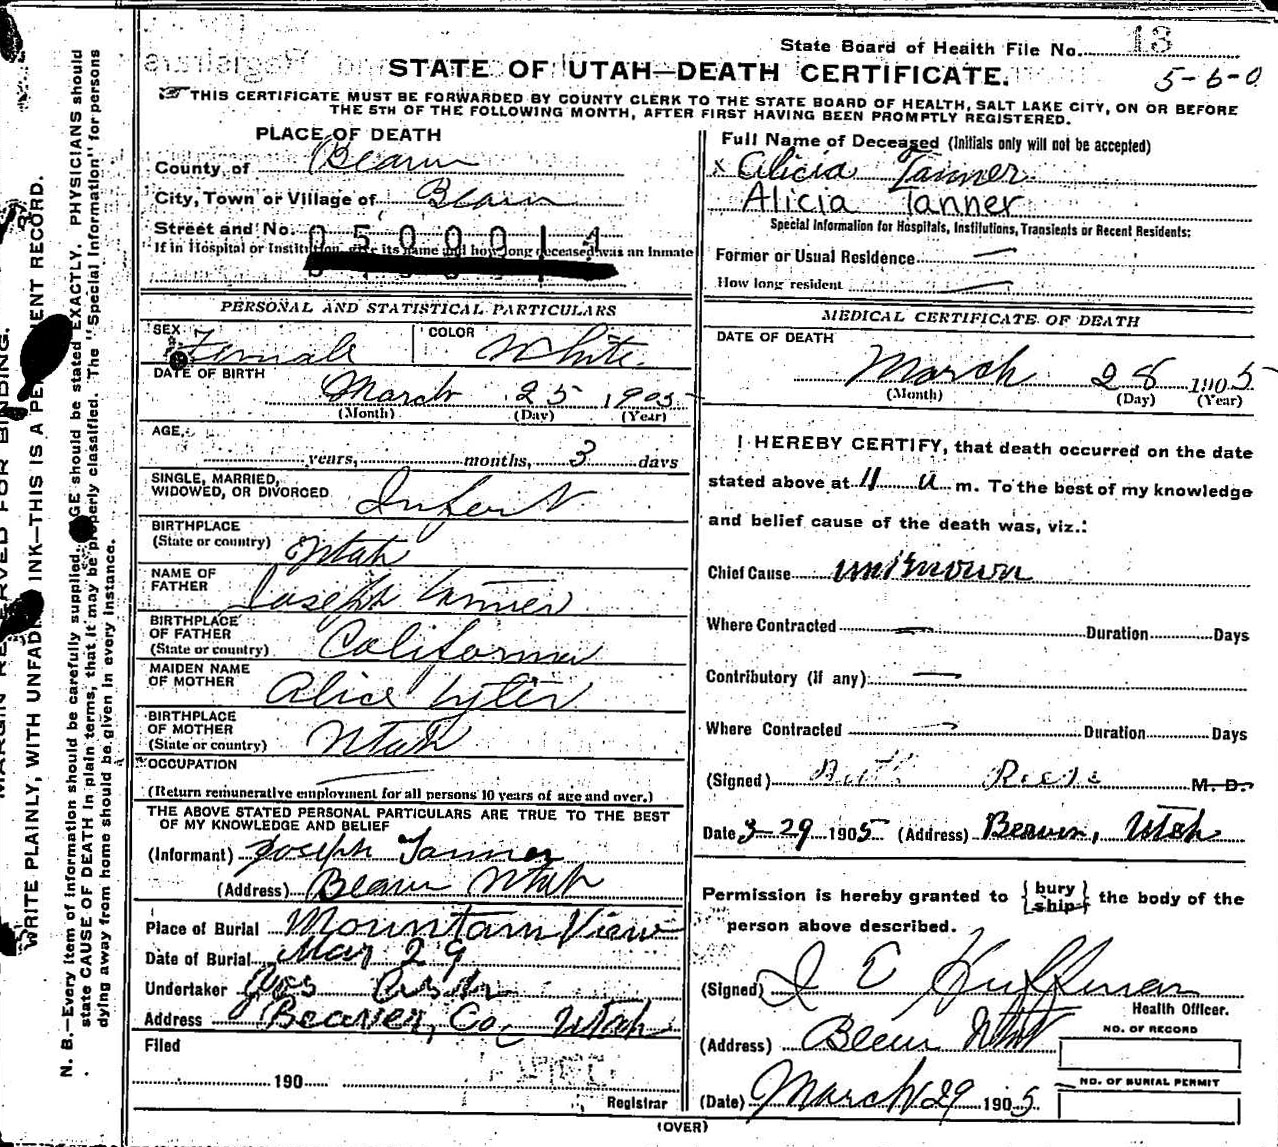 State Board of Health File No. 13
STATE OF UTAH—DEATH CERTIFICATE.
5-6-0
THIS CERTIFICATE MUST BE FORWARDED BY COUNTY CLERK TO THE STATE BOARD OF HEALTH, SALT LAKE CITY, ON OR BEFORE
THE 5TH OF THE FOLLOWING MONTH, AFTER FIRST HAVING BEEN PROMPTLY REGISTERED.
PLACE OF DEATH
County of Beaver
City, Town or Village of Beaver
Street and No.
If in Hospital or Institution, give its name and how long deceased was an Inmate
PERSONAL AND STATISTICAL PARTICULARS
SEX Female COLOR White
DATE OF BIRTH
March 25 1905
(Month) (Day) (Year)
AGE, years, months, 3 days
SINGLE, MARRIED,
WIDOWED, OR DIVORCED Infant
BIRTHPLACE
(State or country) Utah
NAME OF
FATHER Joseph Tanner
BIRTHPLACE
OF FATHER
(State or country) California
MAIDEN NAME
OF MOTHER Alice Lyter
BIRTHPLACE
OF MOTHER
(State or country) Utah
OCCUPATION
(Return remunerative employment for all persons 10 years of age and over.)
THE ABOVE STATED PERSONAL PARTICULARS ARE TRUE TO THE BEST
OF MY KNOWLEDGE AND BELIEF
(Informant) Joseph Tanner
(Address) Beaver Utah
Place of Burial Mountain View
Date of Burial Mar 29
Undertaker
Address Beaver, Co, Utah
Filed
190
Registrar
Full Name of Deceased (Initials only will not be accepted)
x Alicia Tanner
Alicia Tanner
Special Information for Hospitals, Institutions, Transients or Recent Residents:
Former or Usual Residence —
How long resident —
MEDICAL CERTIFICATE OF DEATH
DATE OF DEATH
March 28 1905
(Month) (Day) (Year)
I HEREBY CERTIFY, that death occurred on the date
stated above at 11 a m. To the best of my knowledge
and belief cause of the death was, viz.:
Chief Cause unknown
Where Contracted — Duration Days
Contributory (if any) —
Where Contracted — Duration Days
(Signed) Ruth Reese M. D.
Date 3-29 1905 (Address) Beaver, Utah
Permission is hereby granted to {bury ship} the body of the
person above described.
(Signed) J E Huffman
Health Officer.
(Address) Beaver Utah
NO. OF RECORD
NO. OF BURIAL PERMIT
(Date) March 29 1905
(OVER)
WRITE PLAINLY, WITH UNFADING INK—THIS IS A PERMANENT RECORD.
N. B.—Every item of information should be carefully supplied. AGE should be stated EXACTLY. PHYSICIANS should
state CAUSE OF DEATH in plain terms, that it may be properly classified. The "Special Information" for persons
dying away from home should be given in every instance.